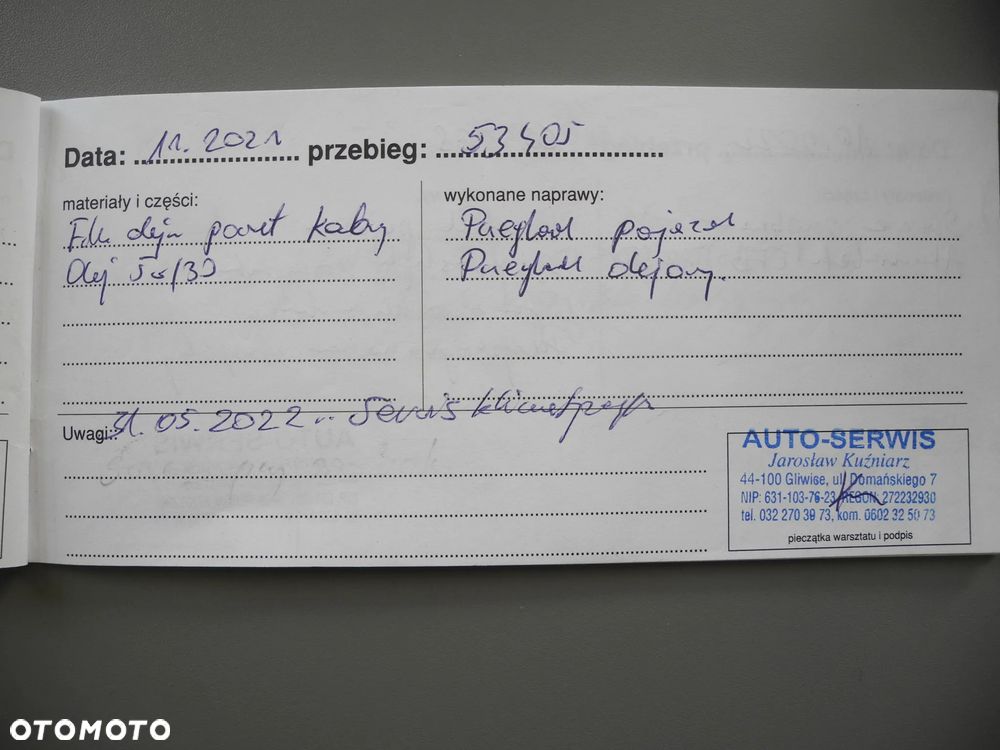 Data: 11.2021 przebieg: 53405
materiały i części:
Filtr oleju powiet kabiny
Olej 5w/30
wykonane naprawy:
Przegląd pojazd
Przegląd olejowy.
Uwagi: 31.05.2022.. Serwis klimatyzacji
AUTO-SERWIS
Jarosław Kuźniarz
44-100 Gliwise, ul. Domańskiego 7
NIP: 631-103-76-23, REGON: 272232930
tel. 032 270 39 73, kom. 0602 32 50 73
pieczątka warsztatu i podpis
OTOMOTO